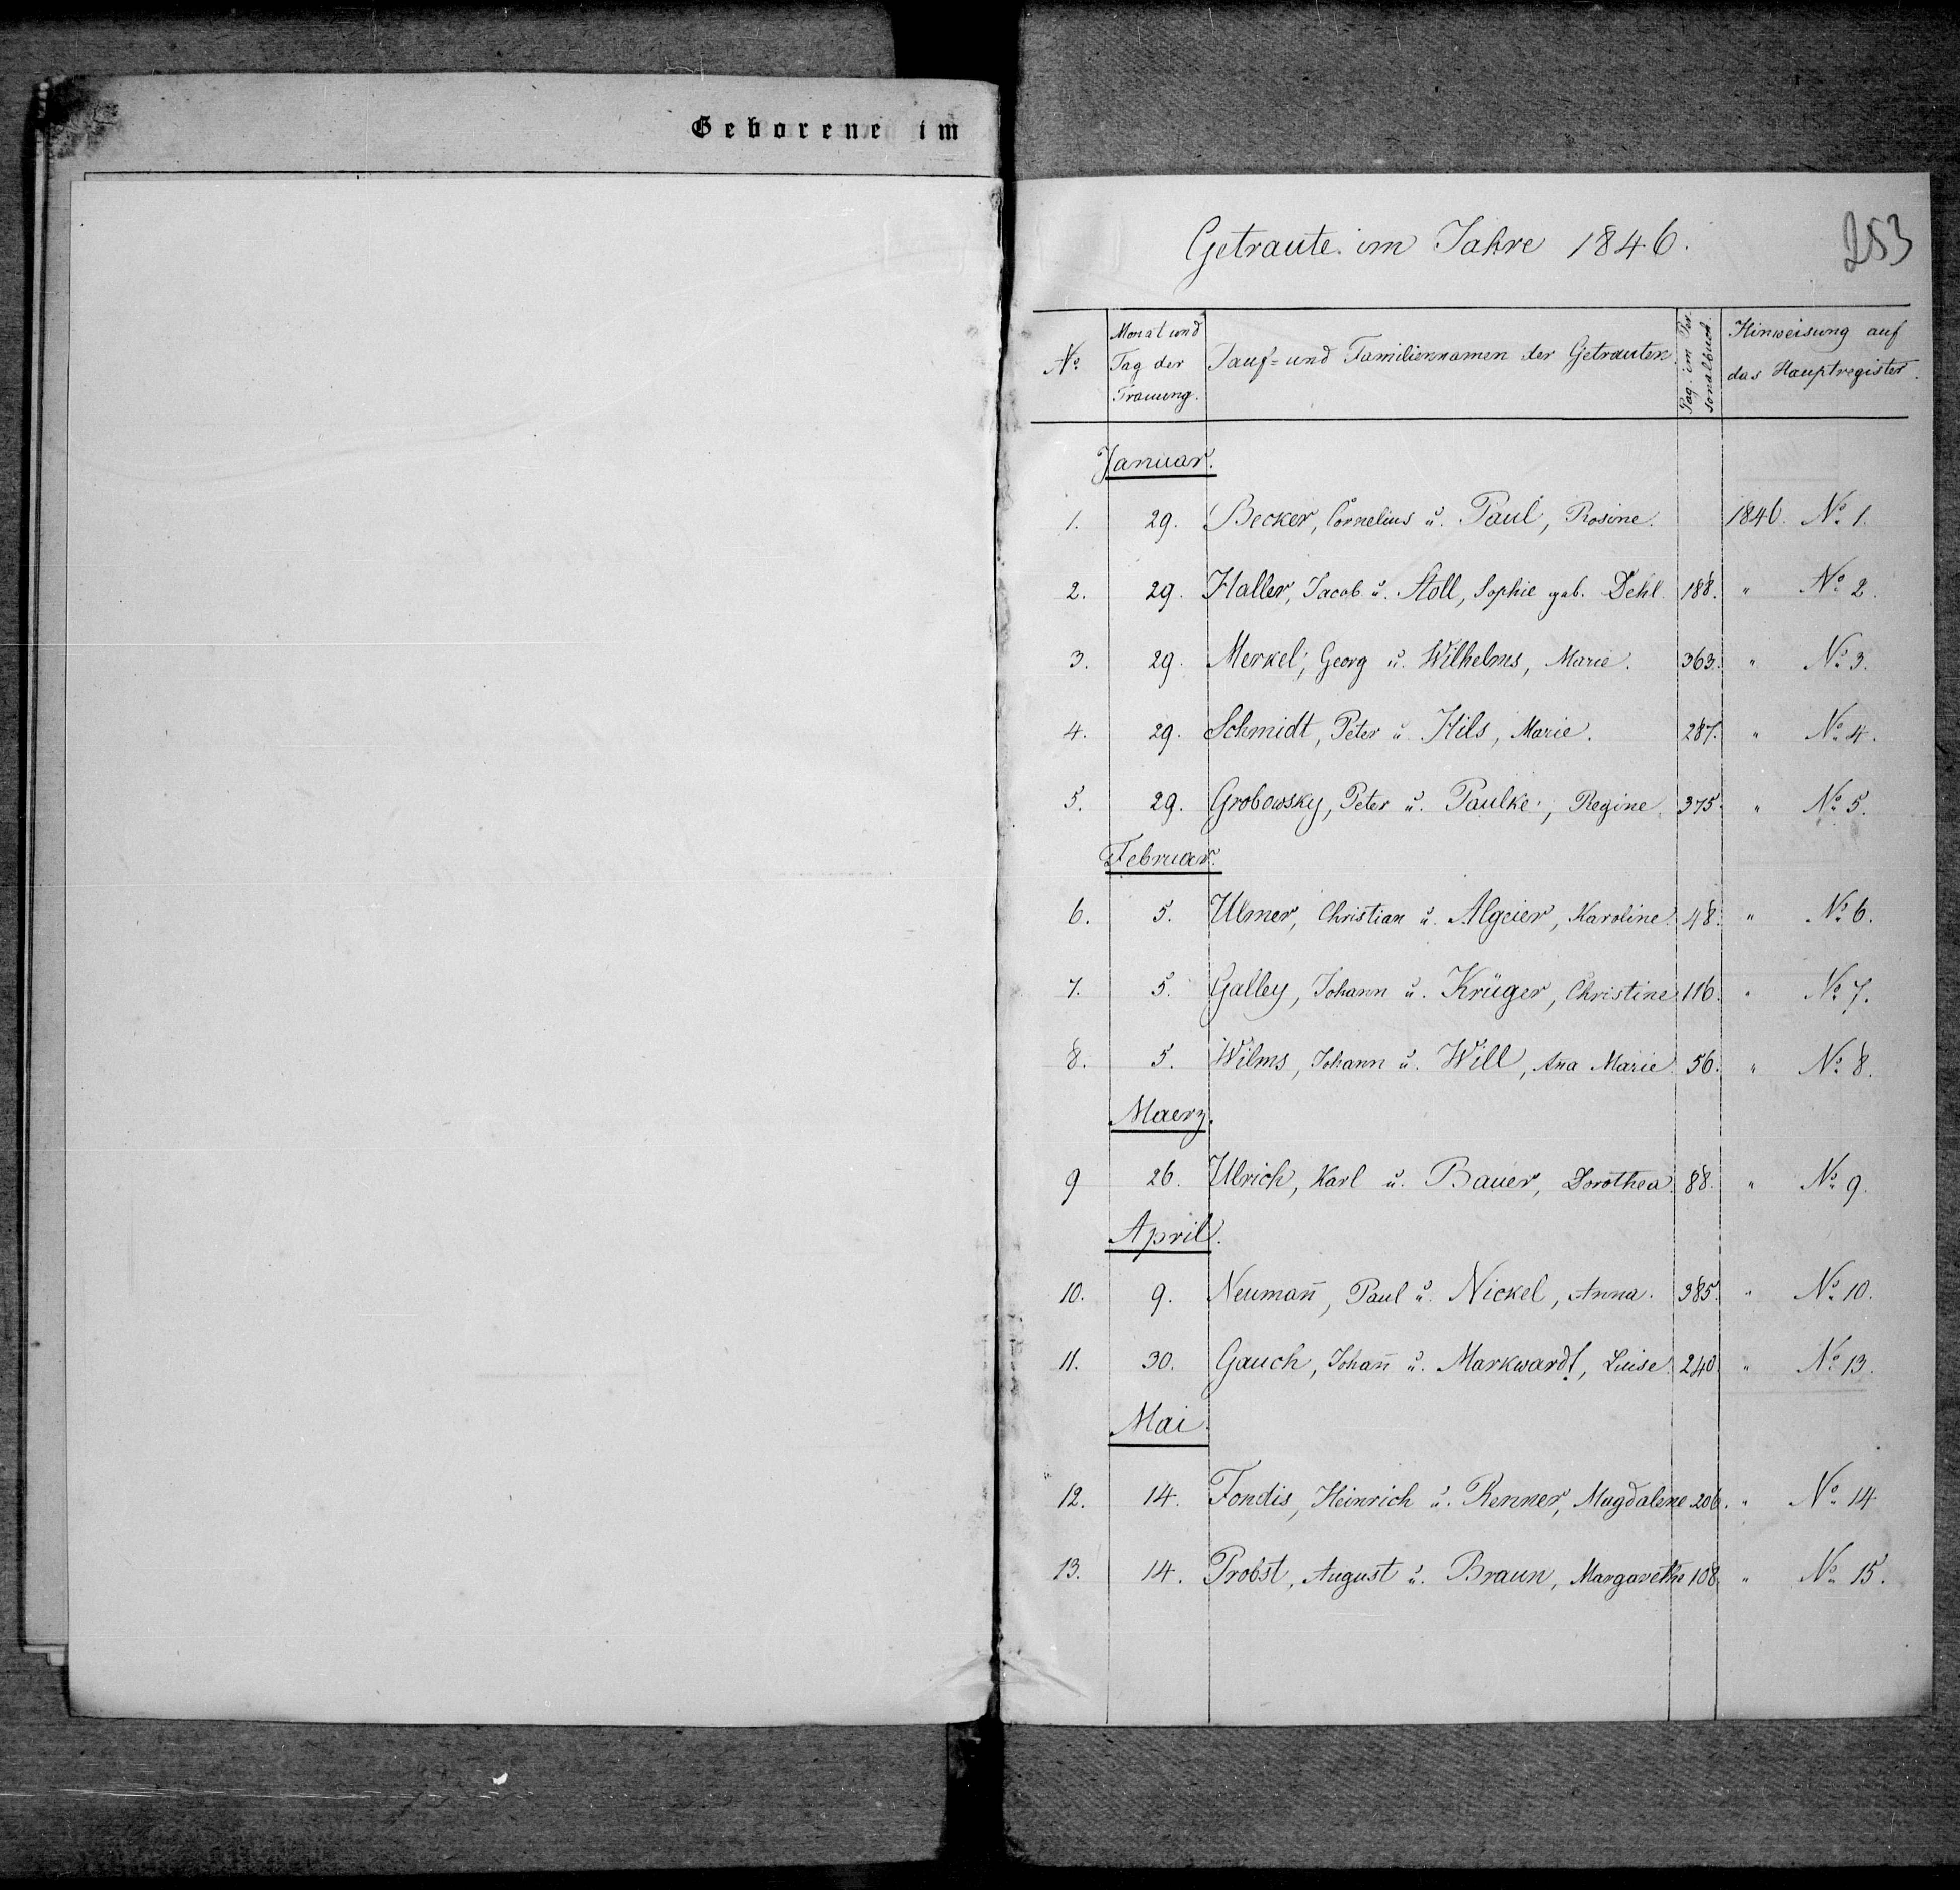 Geborene im
Getraute im Jahre 1846.
253
No. Monat und Tag der Trauung. Tauf- und Familiennamen der Getrauten Pag. im Personalbuch. Hinweisung auf das Hauptregister.
Januar.
1. 29. Becker, Cornelius u. Paul, Rosine. 1846. No. 1.
2. 29. Haller, Jacob u. Stoll, Sophie geb. Dehl 188. " No. 2.
3. 29. Merkel, Georg u. Wilhelms, Marie. 363. " No. 3.
4. 29. Schmidt, Peter u. Hils, Marie. 287. " No. 4.
5. 29. Grobowsky, Peter u. Paulke, Regine. 375. " No. 5.
Februar.
6. 5. Ulmer, Christian u. Algeier, Karoline. 48. " No. 6.
7. 5. Galley, Johann u. Krüger, Christine 116. " No. 7.
8. 5. Wilms, Johann u. Will, Ana̅ Marie 56. " No. 8.
Maerz.
9 26. Ulrich, Karl u. Bauer, Dorothea. 88. " No. 9.
April.
10. 9. Neuman̅, Paul u. Nickel, Anna. 385. " No. 10.
11. 30. Gauch, Johan̅ u. Markwardt, Luise. 240 " No. 13.
Mai.
12. 14. Fondis, Heinrich u. Renner, Magdalene 206. " No. 14
13. 14. Probst, August u. Braun, Margarethe 108. " No. 15.